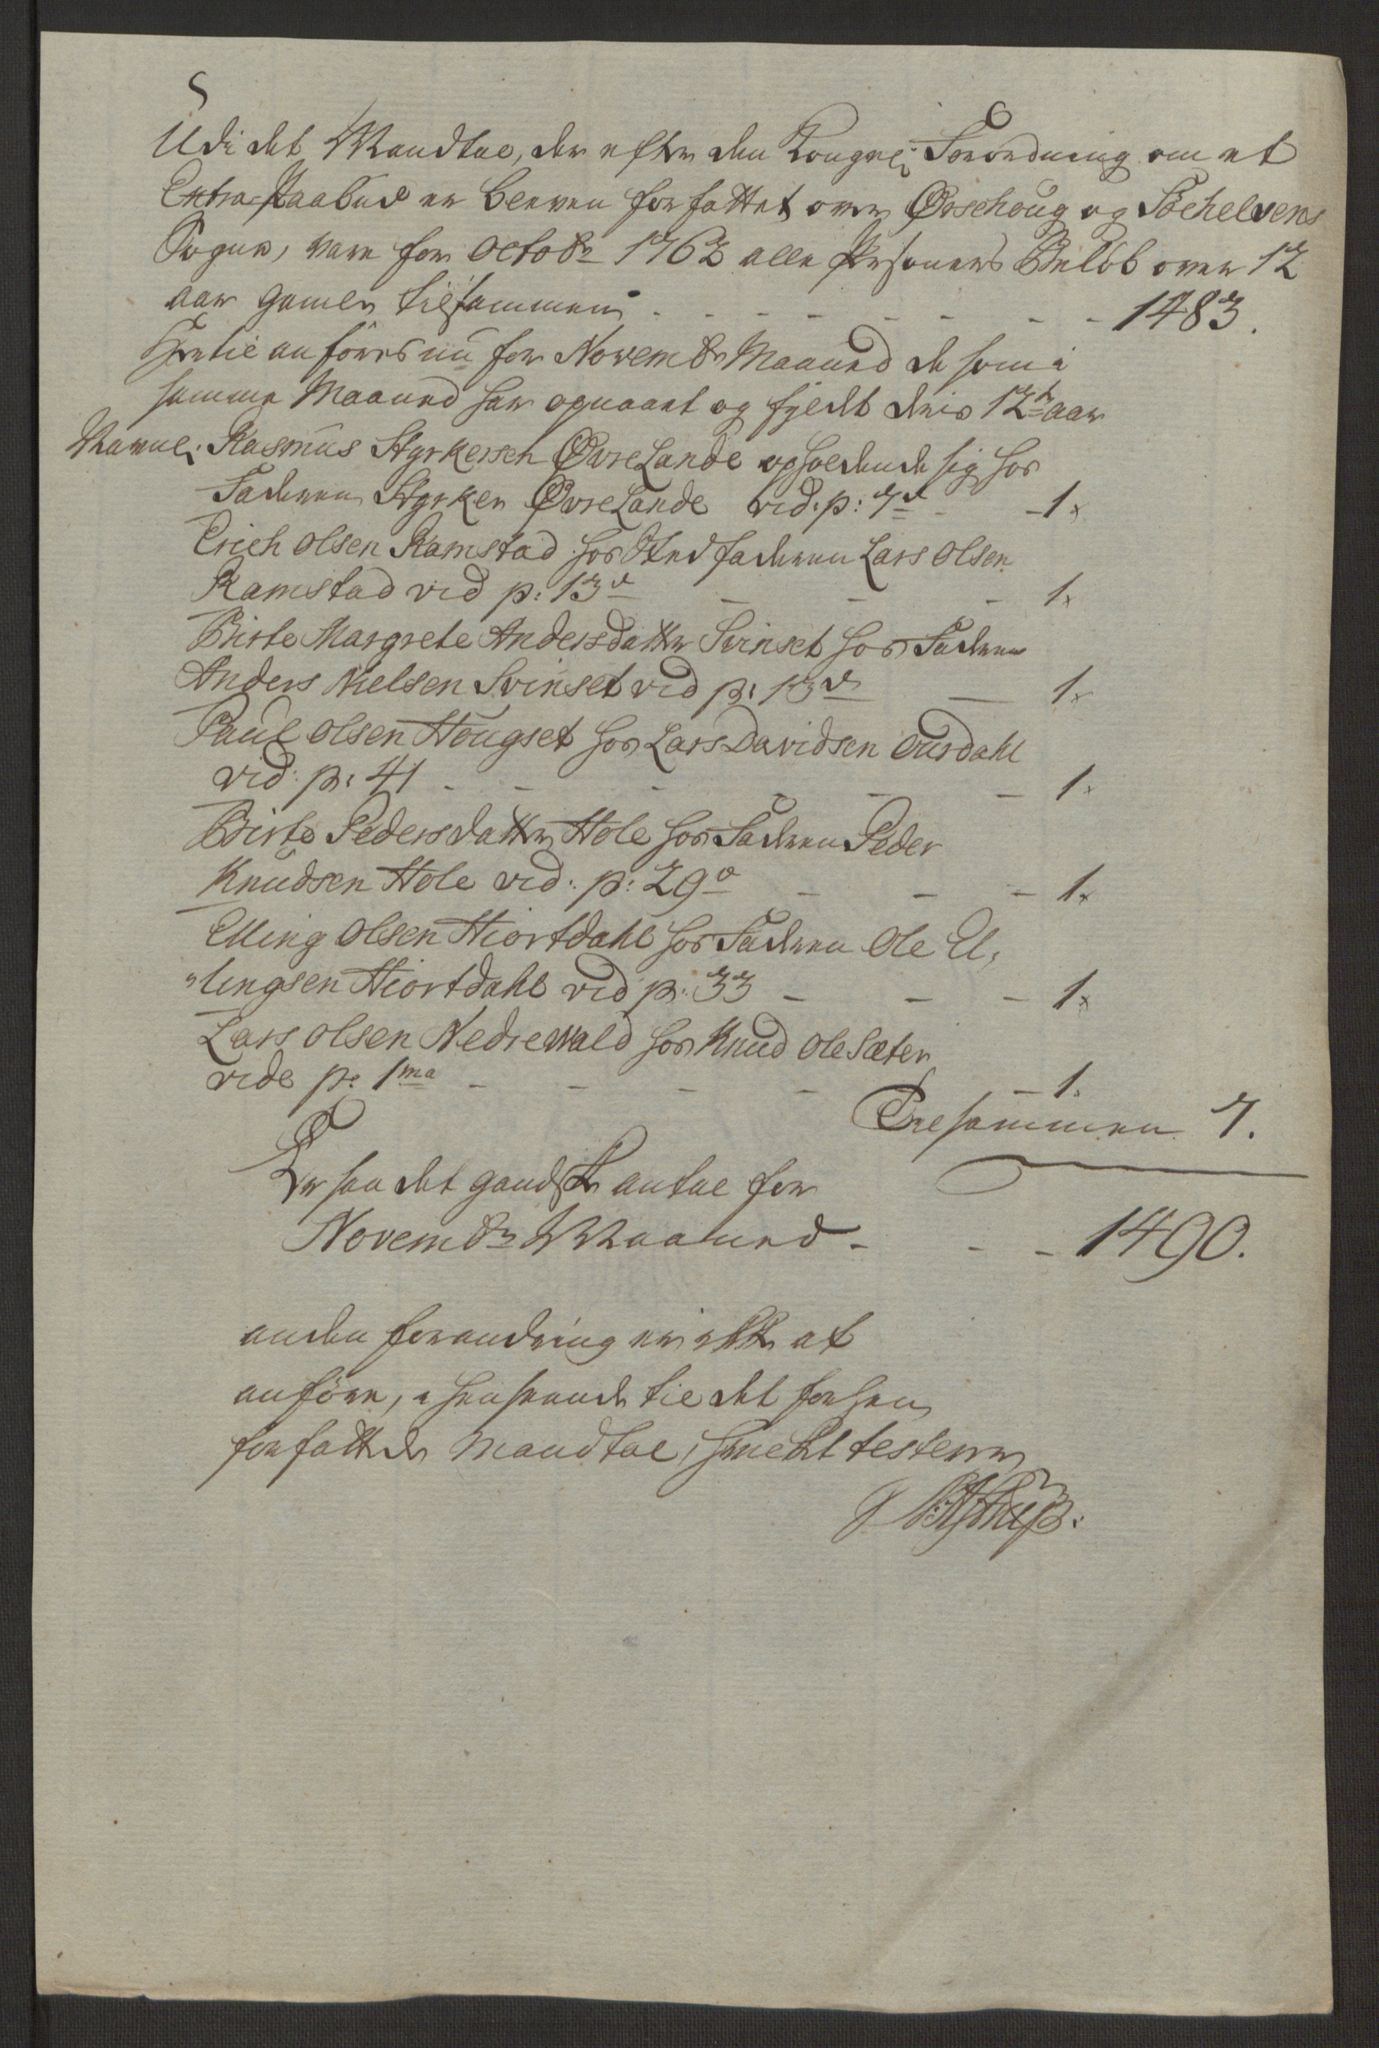 Udi det Mandtal, der efter den Kongel: Forordning om et
Extra-Paabud er bleven forfattet over Ørschoug og Söchelvens
Sogne, vare for Octobr 1763 alle Personers Belöb over 12
aar gamle tilsammen - - - - - - - - 1483.
Hertil anföres nu for Novembr Maaned de som i
samme Maaned har opnaaet og fyldt deris 12te aar
Navnl: Rasmus Styrkersen ØvreLande opholdende sig hos
Faderen Styrker ØvreLande vid: p: 7de - - 1
Erich Olsen Ramstad hos Stedfaderen Lars Olsen
Ramstad vid p: 13de - - - 1
Birte Margrete Andersdatter Svinset hos Faderen
Anders Nielsen Svinset vid p: 13de - 1
Paul Olsen Hougset hos Lars Davidsen Ousdahl
vid: p: 41 - - - - - - 1
Birte Pedersdatter Hole hos Faderen Peder
Knudsen Hole vid: p: 29de - - - 1
Elling Olsen Hiortdahl hos Faderen Ole El,
"lingsen Hiortdahl vid p: 33 - - - 1
Lars Olsen Nedrewald hos Knud Olesæter
vide p: 1ma - - - - - 1
Tilsammen 7.
Er saa det gandske antal for
Novembr Maaned - - - 1490.
anden forandring er ikke at
anföre, i henseende til det forhen
forfattede Mandtal, hvilket testerer